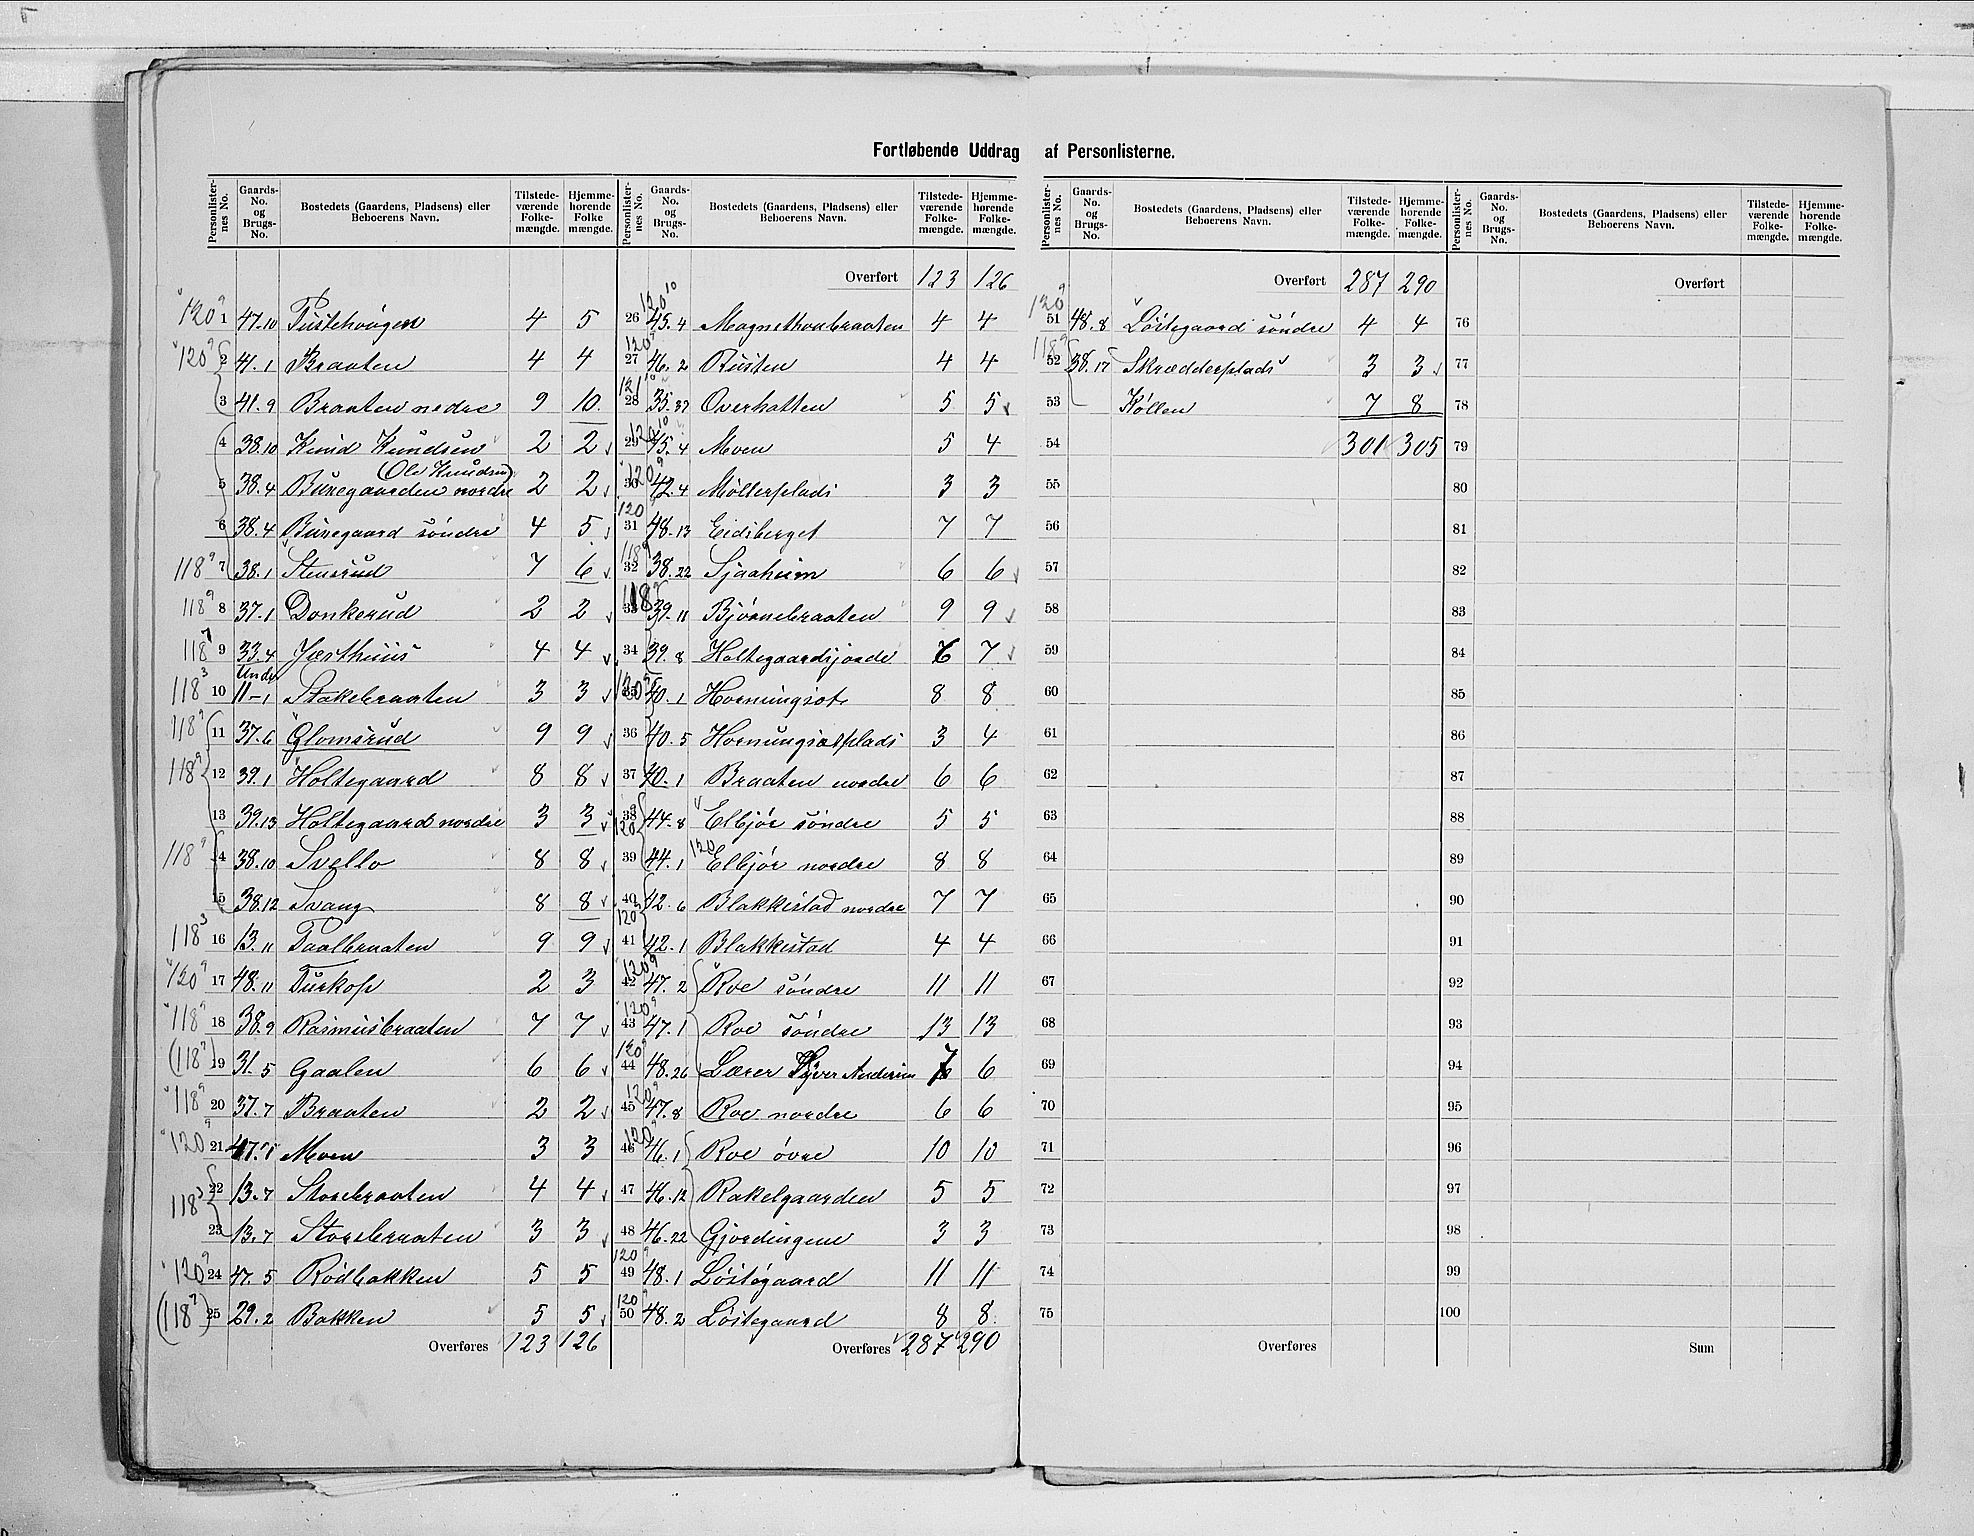 Fortløbende Uddrag af Personlisterne.
Personlisternes No. Gaards-No. og Brugs-No. Bostedets (Gaardens, Pladsens) eller Beboerens Navn. Tilstedeværende Folkemængde. Hjemmehørende Folkemængde.
120⁹ 1 47.10 Pustehougen 4 5
120⁹ 2 41.1 Braaten 4 4
3 41.9 Braaten nedre 9 10
4 38.10 Knud Knudsen 2 2
(Ole Knudsen)
5 38.4 Buregaarden nordre 2 2
6 38.4 Buregaard søndre 4 5
118⁹ 7 38.1 Stensrud 7 6
118⁹ 8 37.1 Donkerud 2 2
118⁷ 9 33.4 Jærthuus 4 4
118³ 10 11-1 Stakebraaten 3 3
118⁹ 11 37.6 Glomsrud 9 9
118⁹ 12 39.1 Holtegaard 8 8
13 39.13 Holtegaard nordre 3 3
118⁹ 14 38.10 Svello 8 8
15 38.12 Svang 8 8
118³ 16 13.11 Paalbraaten 9 9
120⁹ 17 48.11 Purkop 2 3
118⁹ 18 38.9 Rasmusbraaten 7 7
(118⁷) 19 31.5 Gaalen 6 6
118⁹ 20 37.7 Braaten 2 2
120⁹ 21 47.1 Moen 3 3
118³ 22 13.7 Storebraaten 4 4
23 13.7 Storebraaten 3 3
120⁹ 24 47.5 Rødbakken 5 5
(118⁷) 25 29.2 Bakken 5 5
Overføres 123 126
Personlisternes No. Gaards-No. og Brugs-No. Bostedets (Gaardens, Pladsens) eller Beboerens Navn. Tilstedeværende Folkemængde. Hjemmehørende Folkemængde.
Overført 123 126
120¹⁰ 26 45.4 Magnethonbraaten 4 4
120⁹ 27 46.2 Rusten 4 4
121¹⁰ 28 35.37 Overhatten 5 5
120¹⁰ 29 45.4 Moen 5 4
120⁹ 30 42.4 Møllerplads 3 3
120 31 48.13 Eidsberget 7 7
118⁹ 32 38.22 Sjaaheim 6 6
118⁹ 33 39.11 Bjørnebraaten 9 9
34 39.8 Holtegaardsjorde 6 7
120⁹ 35 40.1 Hornungsat 8 8
36 40.5 Hornungsatplads 3 4
37 40.1 Braaten nordre 6 6
120⁹ 38 44.8 Elbjør søndre 5 5
120 39 44.1 Elbjør nordre 8 8
40 42.6 Blakkestad nordre 7 7
120 41 42.1 Blakkestad 4 4
120⁹ 42 47.2 Roe søndre 11 11
120⁹ 43 47.1 Roe søndre 13 13
120⁹ 44 48.26 Lærer Syver Andersen 7 6
120⁹ 45 47.8 Roe nordre 6 6
120⁹ 46 46.1 Roe øvre 10 10
47 46.12 Rakelgaarden 5 5
48 46.22 Gjordingene 3 3
120⁹ 49 48.1 Løstegaard 11 11
120⁹ 50 48.2 Løstegaard 8 8
Overføres 287 290
Personlisternes No. Gaards-No. og Brugs-No. Bostedets (Gaardens, Pladsens) eller Beboerens Navn. Tilstedeværende Folkemængde. Hjemmehørende Folkemængde.
Overført 287 290
120⁹ 51 48.8 Løstegaard søndre 4 4
118⁹ 52 38.17 Skrædderplads 3 3
53 Kollen 7 8
54 301 305
55
56
57
58
59
60
61
62
63
64
65
66
67
68
69
70
71
72
73
74
75
Overføres
Personlisternes No. Gaards-No. og Brugs-No. Bostedets (Gaardens, Pladsens) eller Beboerens Navn. Tilstedeværende Folkemængde. Hjemmehørende Folkemængde.
Overført
76
77
78
79
80
81
82
83
84
85
86
87
88
89
90
91
92
93
94
95
96
97
98
99
100
Sum